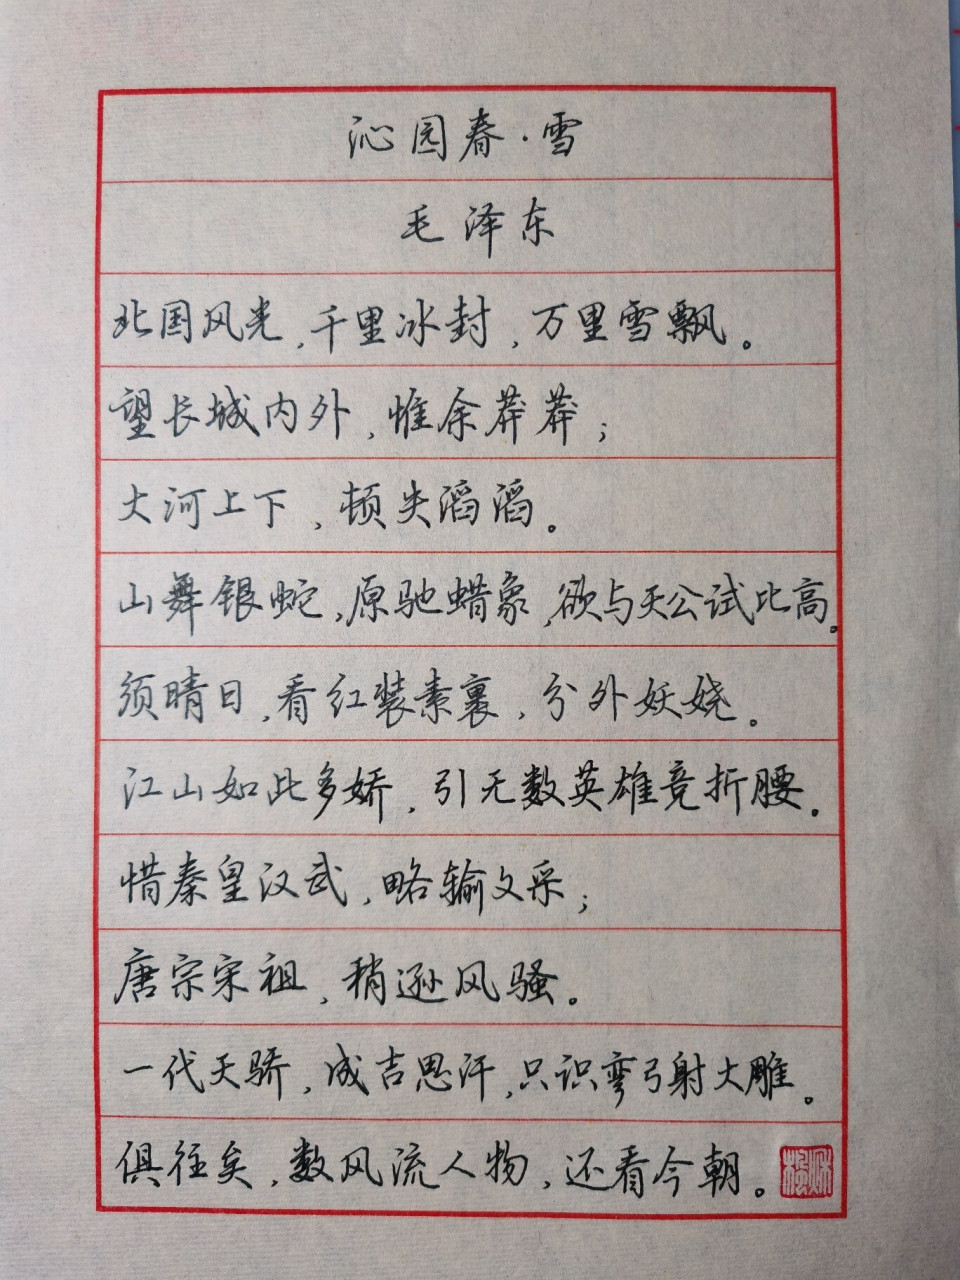 沁园春·雪
毛泽东
北国风光，千里冰封，万里雪飘。
望长城内外，惟余莽莽；
大河上下，顿失滔滔。
山舞银蛇，原驰蜡象，欲与天公试比高。
须晴日，看红装素裹，分外妖娆。
江山如此多娇，引无数英雄竞折腰。
惜秦皇汉武，略输文采；
唐宗宋祖，稍逊风骚。
一代天骄，成吉思汗，只识弯弓射大雕。
俱往矣，数风流人物，还看今朝。